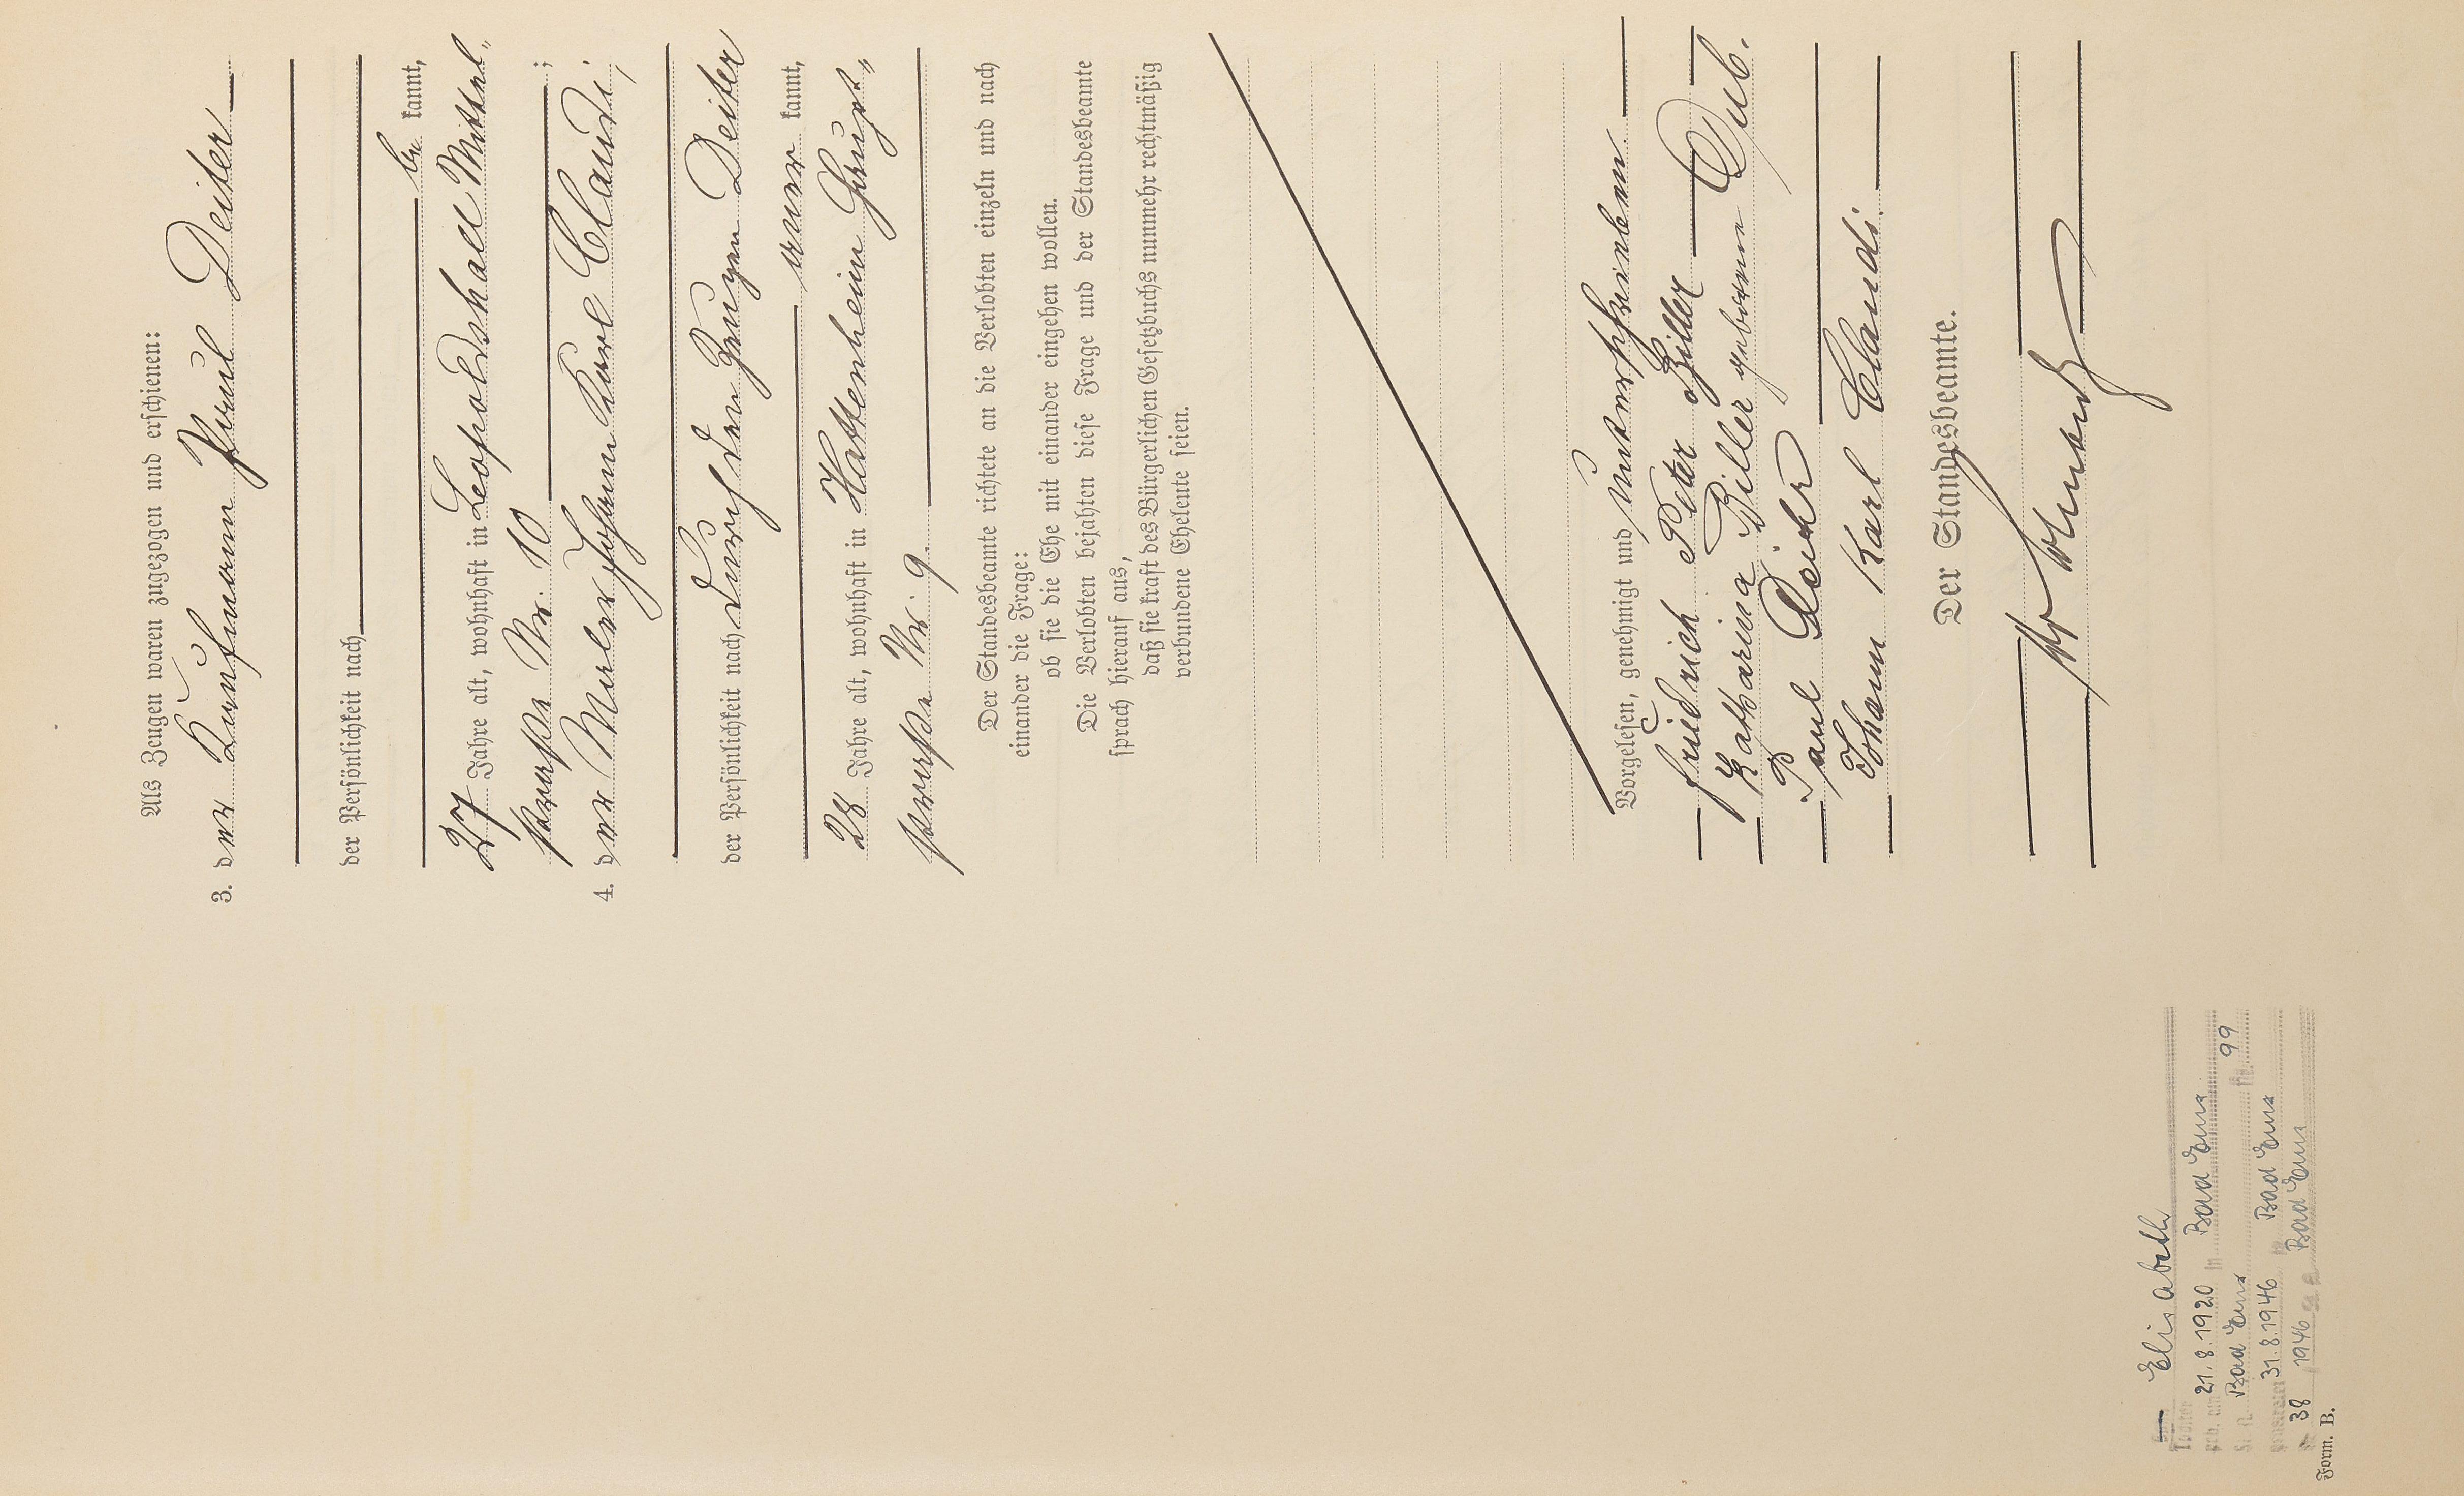 Als Zeugen waren zugezogen und erschienen:
3. der Kaufmann Paul Deiter
der Persönlichkeit nach
be kannt,
27 Jahre alt, wohnhaft in Leopoldshall Mittel„
straße Nr. 10 ;
4. der Maler Johann Karl Claudi,
der Persönlichkeit nach durch den Zeugen Deiter
aner kannt,
28 Jahre alt, wohnhaft in Hattenheim Haupt„
straße Nr. 9.
Der Standesbeamte richtete an die Verlobten einzeln und nach
einander die Frage:
ob sie die Ehe mit einander eingehen wollen.
Die Verlobten bejahten diese Frage und der Standesbeamte
sprach hierauf aus,
daß sie kraft des Bürgerlichen Gesetzbuchs nunmehr rechtmäßig
verbundene Eheleute seien.
Vorgelesen, genehmigt und unterschrieben
Friedrich Peter Biller
Katharina Biller geborene Dub.
Paul Deiter
Johann Karl Claudi.
Der Standesbeamte.
Elisabeth
Tochter
geb. am 21.8.1920 in Bad Ems
St. A. Bad Ems Nr. 99
31.8.1946 Bad Ems
38 1946 Bad Ems
Form. B.